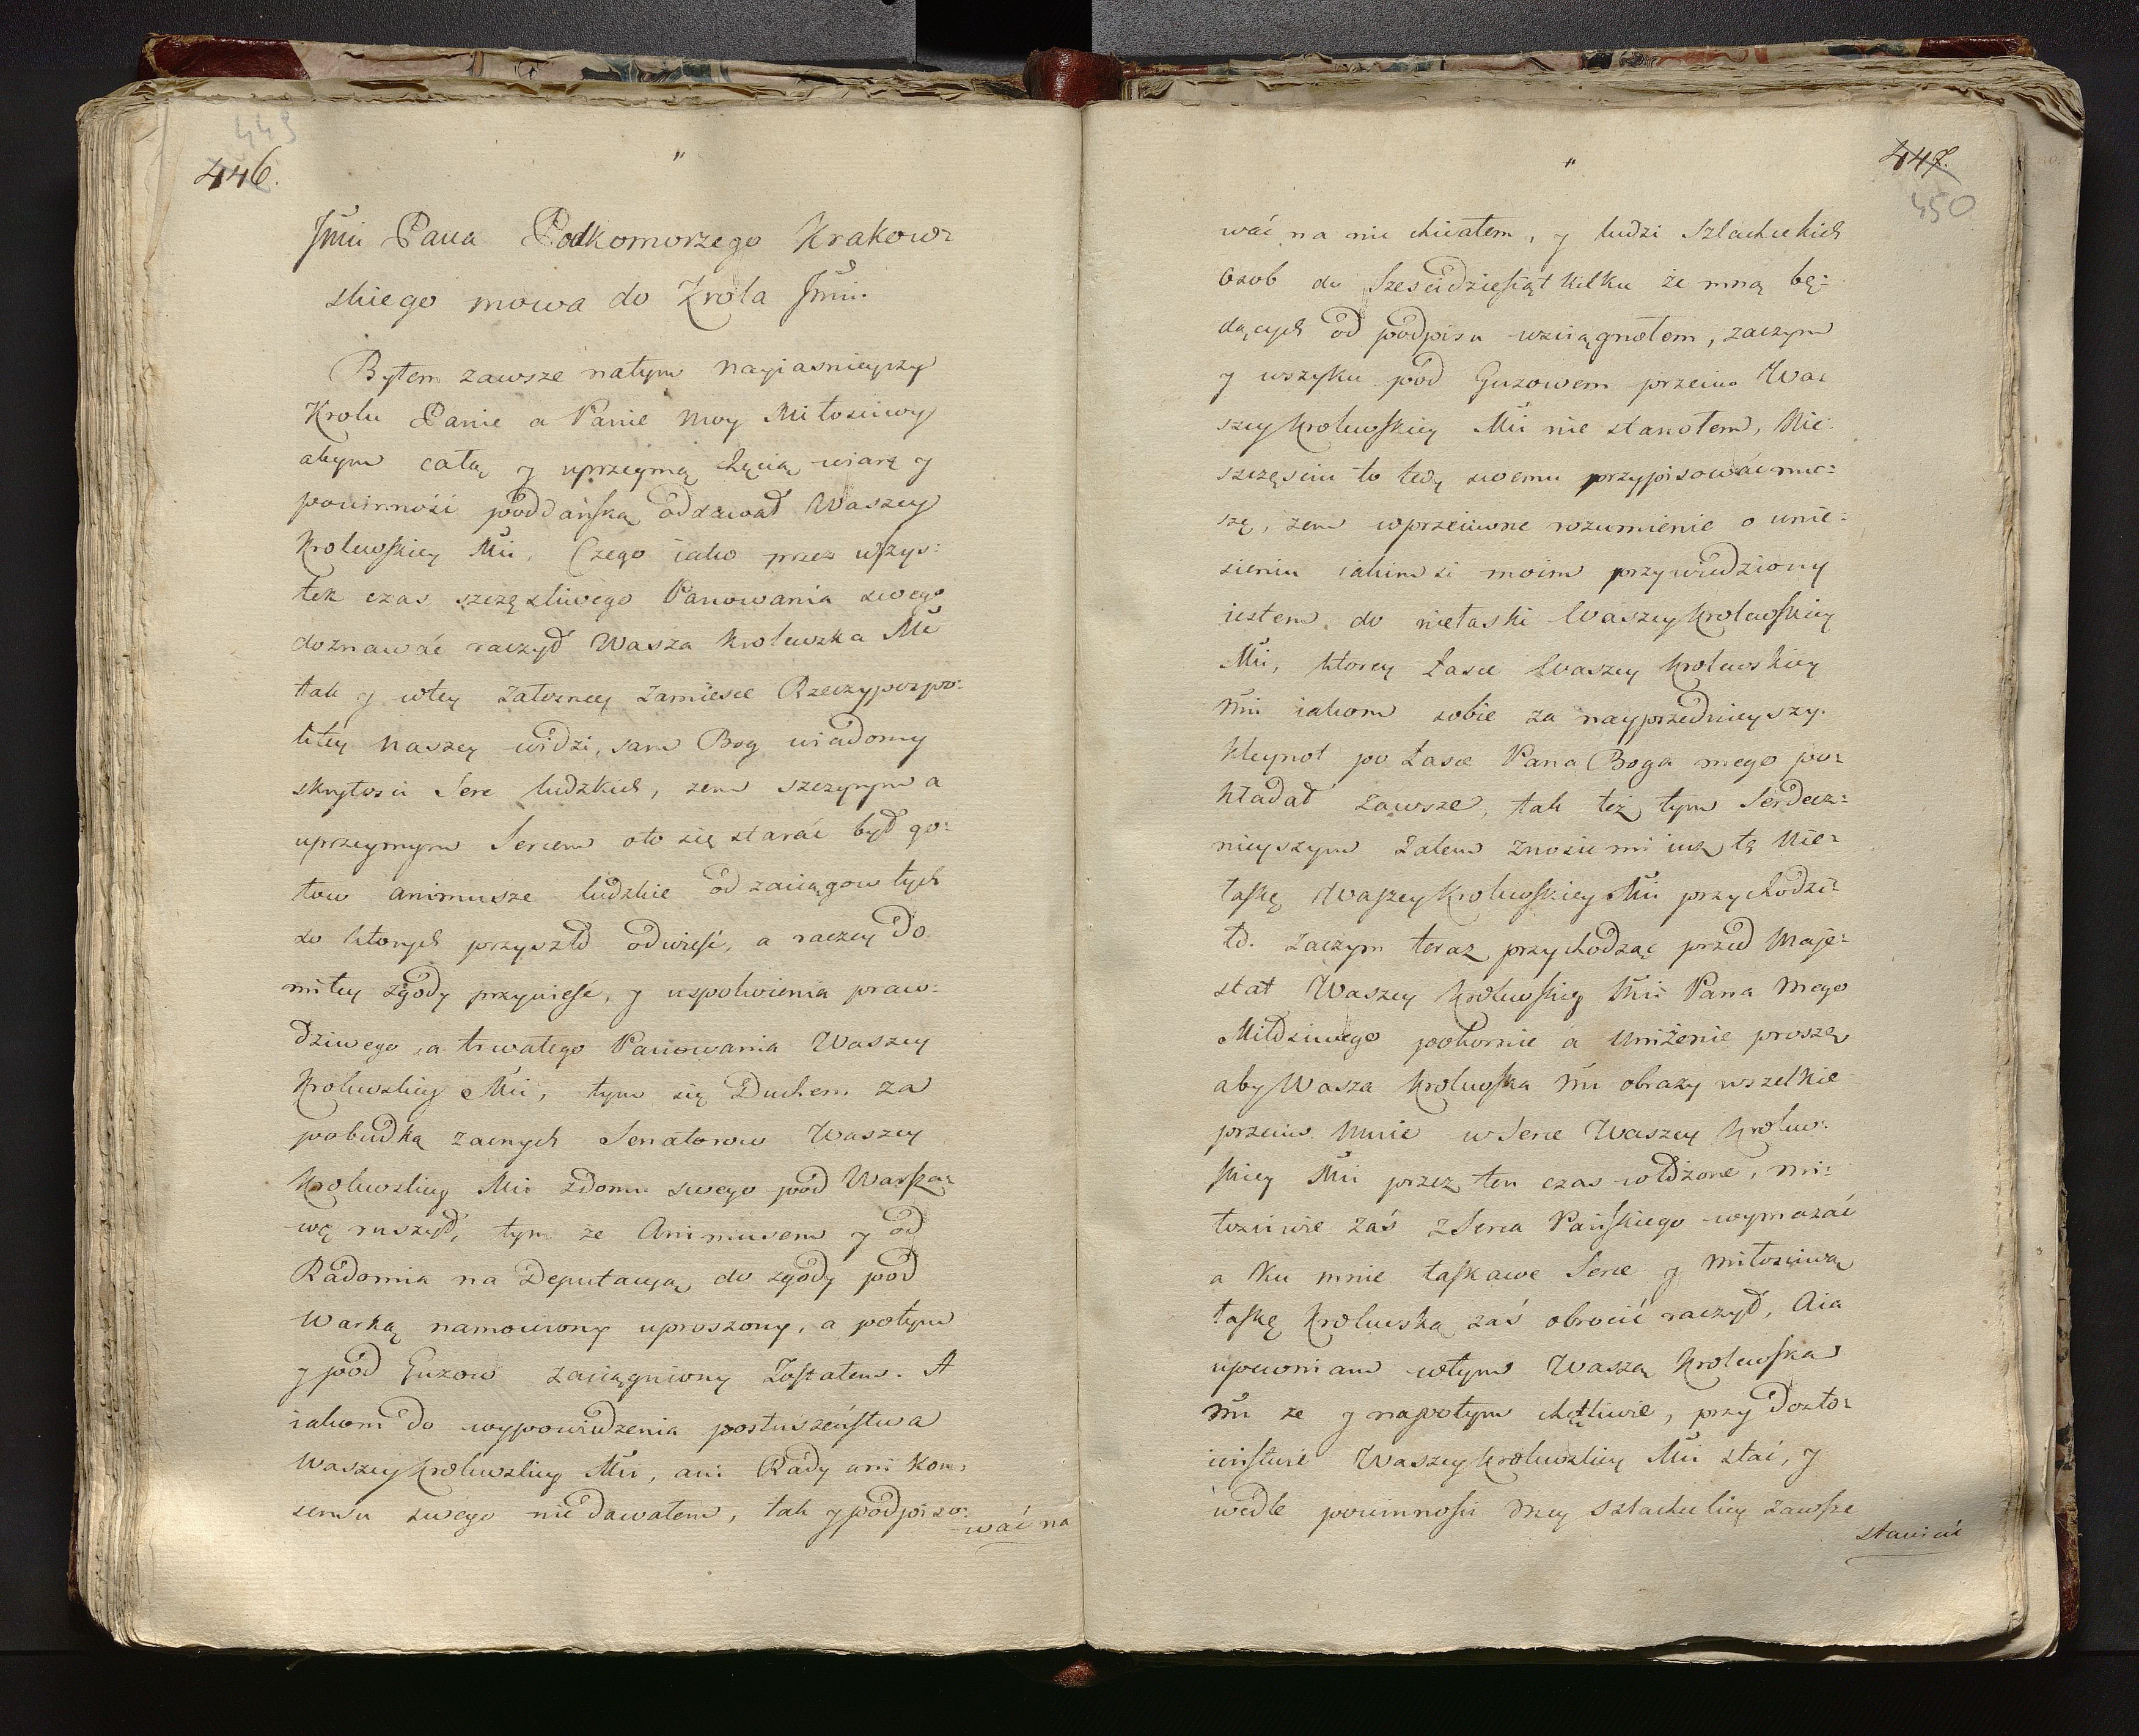 449
446.
"
Jmci Pana Podkomorzego Krakow=
skiego mowa do Krola Jmci.
Byłem zawsze natym nayiasnieyszy
Krolu Panie a Panie moy Miłosciwy
abym całą y uprzeymą chęcią wiarę y
powinność poddańską oddawał Waszey
Krolewskiey Mci, Czego iako przez wszys=
tek czas szczęsliwego Panowania swego
doznawać raczył Wasza Krolewska Mć
tak y wtey załosney zamiesce Rzeczypospo=
litey naszey widzi, sam Bog wiadomy
skrytosci Serc ludzkich, zem szczyrym a
uprzeymym Sercem oto się starać był go=
tow animusze ludzkie od zaciągow tych
do ktorych przyszło odwieść, a raczey do
miłey zgody przywieść, y uspokoienia praw=
dziwego, a trwałego Panowania Waszey
Krolewskiey Mci, tym się Duchem za
pobudką zacnych Senatorow Waszey
Krolewskiey Mci zdomu swego pod Warsza=
wę ruszył, tym że Animusem y od
Radomia na Deputacyą do zgody pod
Warką namowiony uproszony, a potym
y pod Guzow zaciągniony Zostałem. A
iakom do wypowiedzenia posłuszeństwa
Waszey Krolewskiey Mci, ani Rady ani Kon=
sensu swego nie dawałem, tak y podpiso=
wać na
"
447.
450
wać na nie chciałem, y ludzi Szlacheckich
Osob do Sześcidziesiąt kilku że mną bę=
dących od podpisu wsciągnołem, zaczym
y wszyku pod Guzowem przeciw Wa=
szey Krolewskiey Mci nie stanołem, Nie=
szczęsciu to tedy swemu przypisować mu=
szę, zem wprzeciwne rozumienie o unie=
sieniu iakimsi moim przywiedziony
iestem do niełaski Waszey Krolewskiey
Mci, ktorey Łasce Waszey Krolewskiey
Mci iakom sobie za nayprzednieyszy
kleynot po Łasce Pana Boga mego po=
kładał zawsze, tak też tym Serdecz=
nieyszym Żalem znosić mi iuż tę Nie=
łaskę Waszey Krolewskiey Mci przychodzi=
ło. Zaczym teraz przychodząc przed Maje=
stat Waszey Krolewskiey Mci Pana mego
Miłosciwego pokornie a uniżenie proszę
aby Wasza Krolewska Mć obrazy wszelkie
przeciw Mnie w Serce Waszey Krolew=
skiey Mci przez ten czas włożone, mi=
łosciwie zaś z Serca Pańskiego wymazać
a ku mnie łaskawe Serce y miłosciwą
łaskę Krolewską zaś obrocić raczył, Aia
upewniam wtym Waszą Krolewską
Mć ze y napotym chętliwie, przy dosto=
ieństwie Waszey Krolewskiey Mci stać, y
wedle powinności mey szlacheckiey zawsze
stawić